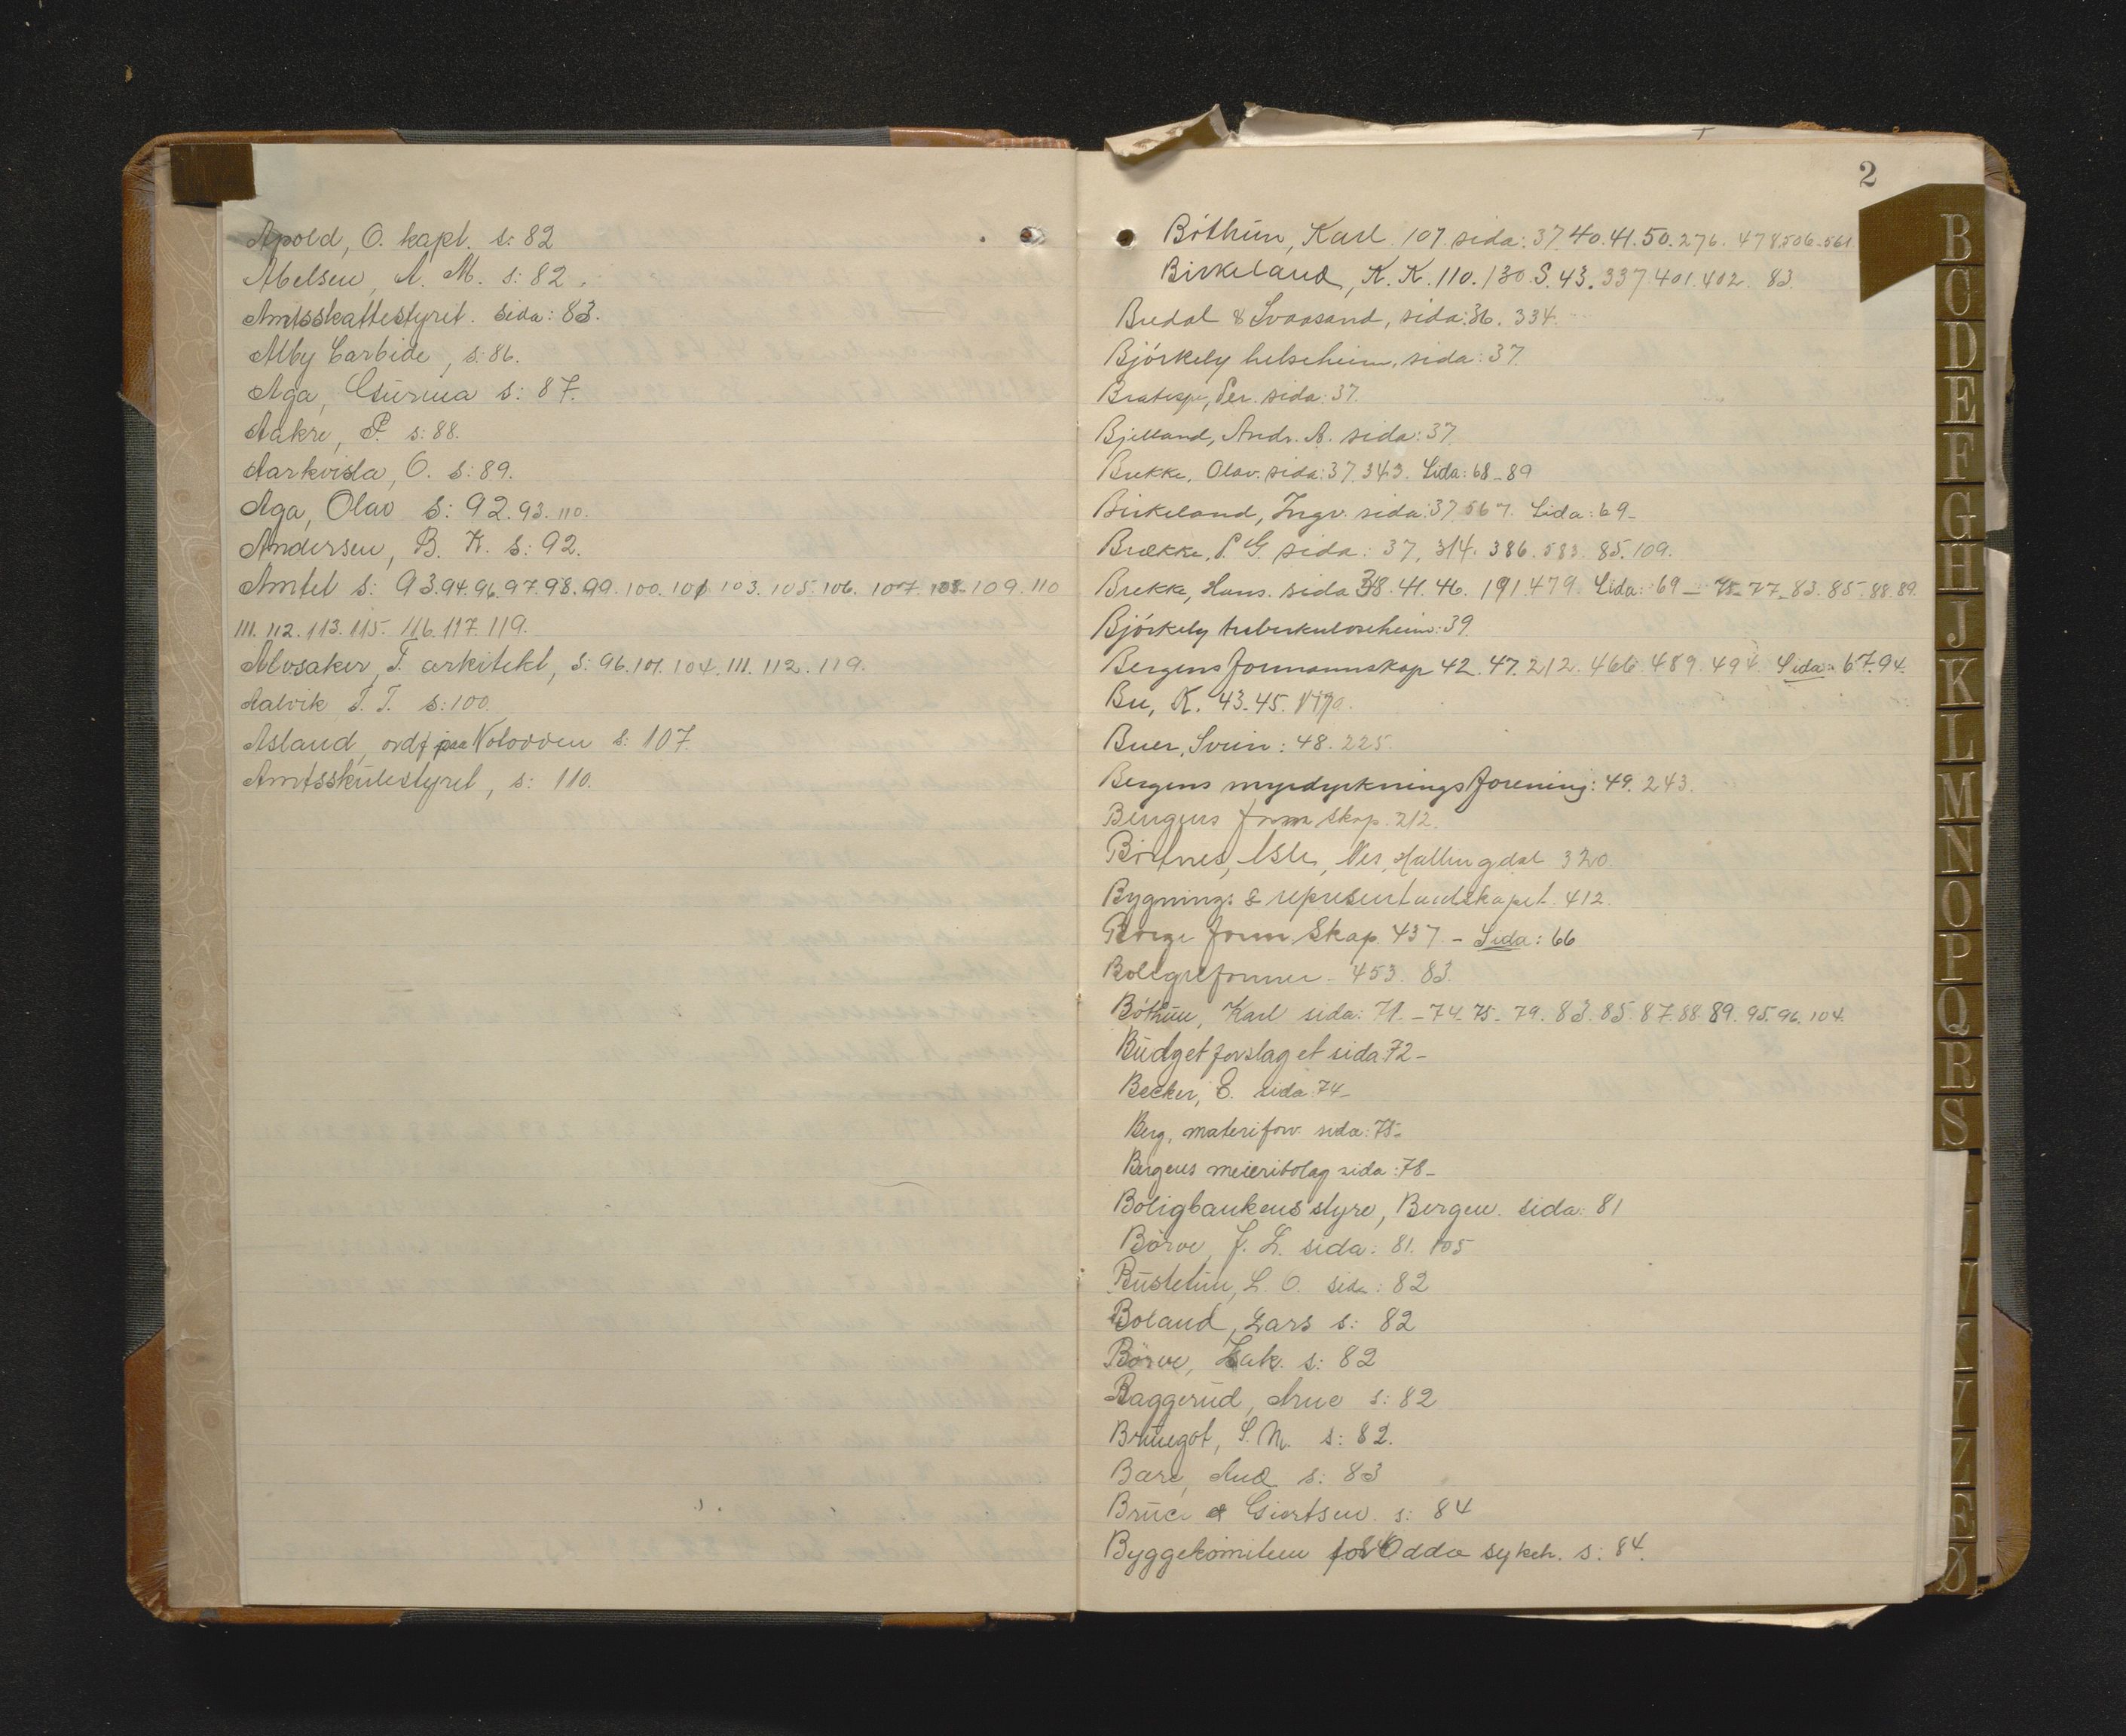 Apold, O. kapt. s: 82
Abelsen, A. M. s: 82.
Amtsskattestyret. sida: 83.
Alby Carbide, s: 86.
Aga, Gürina s: 87.
Aakre, P. s: 88.
Aarkvisla, O. s: 89.
Aga, Olav s: 92. 93. 110.
Andersen, B. K. s: 92.
Amtet s: 93. 94. 96. 97. 98. 99. 100. 101 103. 105. 106. 107. 108. 109. 110
111. 112. 113. 115. 116. 117. 119.
Alvsaker, T. arkitekt, s: 96. 101. 104. 111. 112. 119.
Aalvik T. T. s: 100.
Asland, ordf paa Notodden s: 107.
Amtsskülestyret, s: 110.
2
Bóthün, Karl 107 sida: 37. 40. 41. 50. 276. 478. 506. 561.
Birkeland, K. K. 110. 130. S. 43. 337. 401. 402. 83.
Bredal & Svaasand, sida: 36. 334.
Bjórkely helseheim, sida: 37.
Per. sida: 37.
Bjelland, Andr. A. sida: 37.
Brekke, Olav. sida: 37. 343. Sida: 68 - 89
Birkeland, Ingv. sida: 37. 567. Sida: 69 -
Brække, P. G. sida: 37. 314. 386. 583. 85. 109.
Brekke, Hans. sida 38. 41. 46. 191. 479. Sida: 69 - 75 - 77 - 83. 85. 88. 89.
Bjórkely tuberkuloseheim: 39.
Bergens formannskap 42. 47. 212. 466. 489. 494. Sida: 67. 94.
Bu, K. 43. 45.
Buer, Svein: 48. 225.
Bergens myrdyrkningsforening: 49. 243.
Bergens form skap. 212.
Bortnes, Asle, Nes, Hallingdal 320.
Bygnings & representandskapet. 412.
Borge form Skap. 437 - Sida: 66
453. 83.
Bóthün, Karl sida: 71. - 74. 75 - 79. 83. 85. 87. 88. 89. 95. 96. 104.
Büdgetforslaget sida 72 -
Becker, E. sida 74 -
Berg, materiforv. sida: 75 -
Bergens meieribolag sida: 78 -
Boligbankens styre, Bergen. sida: 81
Börve, J. L. sida: 81. 105
Büstetün, L. O. sida: 82
Boland, Lars s: 82
Börve, Isak. s: 82
Baggerüd, Arne s: 82
Brüegot, S. M. s: 82.
Bære, Aud s: 83
Brüce & Giertsen. s: 84
Byggekomiteen for Odda sykeh. s: 84.
B
C
D
E
F
G
H
J
K
L
M
N
O
P
Q
R
S
V
Z
Æ
Ø